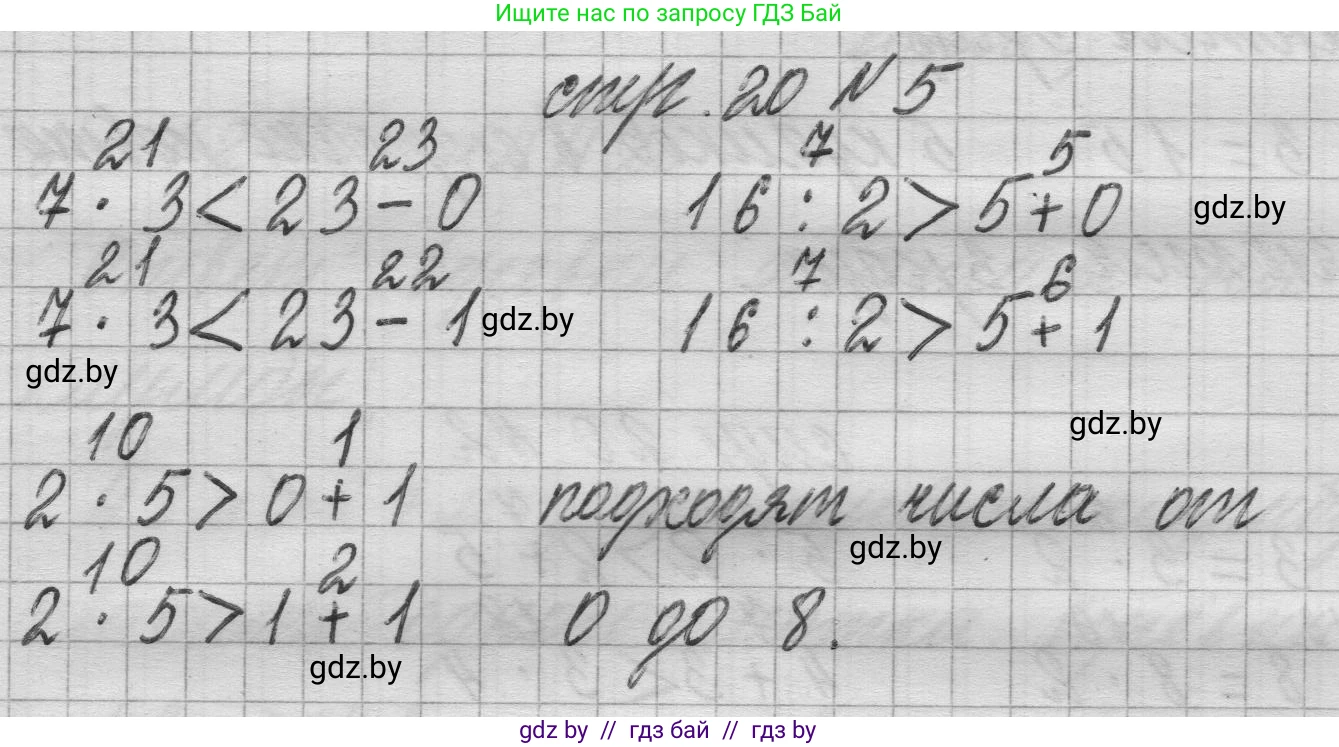 Ищите нас по запросу ГДЗ Бай
стр. 20 N 5
21 23 7 5
7 · 3 < 23 - 0 16 : 2 > 5 + 0 gdz.by
21 22 7 6
7 · 3 < 23 - 1 gdz.by 16 : 2 > 5 + 1
gdz.by
gdz.by
10 1
2 · 5 > 0 + 1 подходят числа от
gdz.by
10 2
2 · 5 > 1 + 1 0 до 8.
gdz.by
gdz by // гдз бай // гдз by